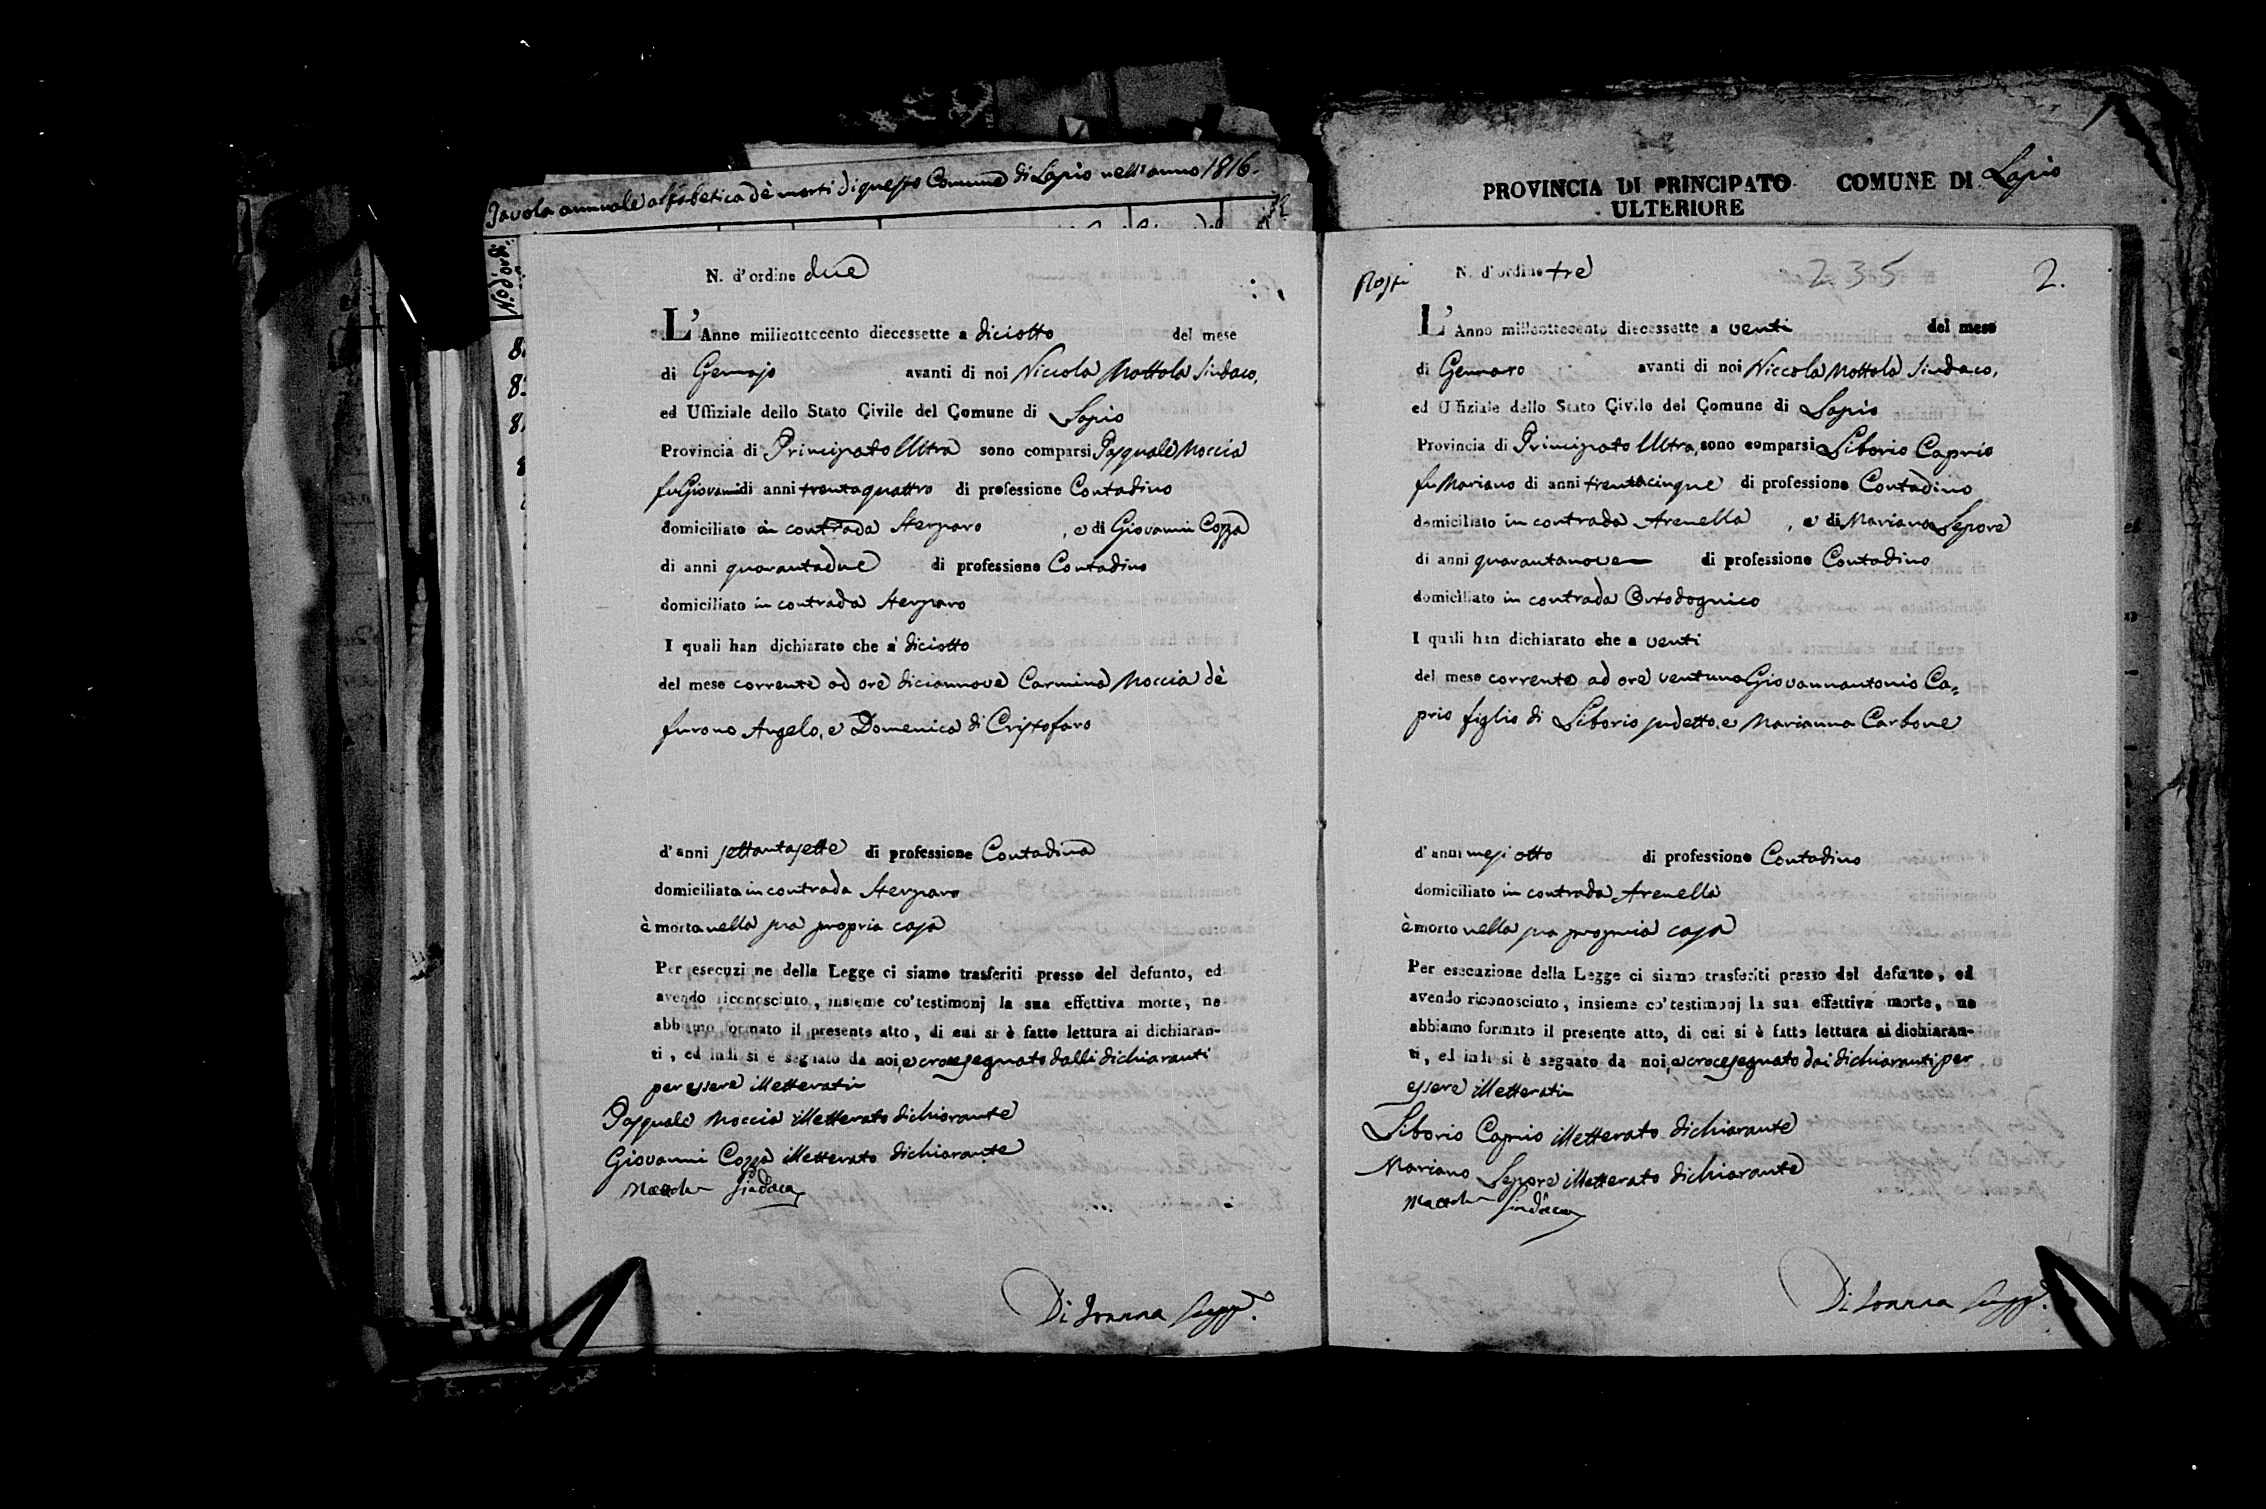 Tavola annuale alfabetica dè morti di questo Comune di Lapio nell'anno 1816.
N.o d'ordi.
N. d'ordine due
L'Anno milleottocento diecessette a diciotto del mese
di Gennajo avanti di noi Niccola Mottola Sindaco,
ed Uffiziale dello Stato Civile del Comune di Lapio
Provincia di Principato Ultra sono comparsi Pasquale Moccia
fu Giovanni di anni trentaquattro di professione Contadino
domiciliato in contrada Sterparo , e di Giovanni Cozza
di anni quarantadue di professione Contadino
domiciliato in contrada Sterparo
I quali han dichiarato che a diciotto
del mese corrente ad ore diciannove Carmina Moccia dè
furono Angelo, e Domenica di Cristofaro
d'anni settantasette di professione Contadina
domiciliata in contrada Sterparo
è morta nella sua propria casa
Per esecuzione della Legge ci siamo trasferiti presso del defunto, ed
avendo riconosciuto, insieme co' testimonj la sua effettiva morte, ne
abbiamo formato il presente atto, di cui si è fatto lettura ai dichiaran-
ti, ed indi si è segnato da noi, e crocesegnato dalli dichiaranti
per essere illetterati
Pasquale Moccia illetterato dichiarante
Giovanni Cozza illetterato dichiarante
Sindaco
Di Ioanna Supp.
PROVINCIA DI PRINCIPATO COMUNE DI Lapio
ULTERIORE
N. d'ordine tre 235 2.
L'Anno milleottocento diecessette a venti del mese
di Gennaro avanti di noi Niccola Mottola Sindaco,
ed Uffiziale dello Stato Civile del Comune di Lapio
Provincia di Principato Ultra, sono comparsi Liborio Caprio
fu Mariano di anni trentacinque di professione Contadino
domiciliato in contrada Arenella , e di Mariano Lepore
di anni quarantanove di professione Contadino
domiciliato in contrada Ortodognico
I quali han dichiarato che a venti
del mese corrente ad ore ventuno Giovannantonio Ca=
prio figlio di Liborio sudetto, e Marianna Carbone
d'anni mesi otto di professione Contadino
domiciliato in contrada Arenella
è morto nella sua propria casa
Per esecuzione della Legge ci siamo trasferiti presso del defunto, ed
avendo riconosciuto, insieme co' testimonj la sua effettiva morte, ne
abbiamo formato il presente atto, di cui si è fatto lettura ai dichiaran-
ti, ed indi si è segnato da noi, e crocesegnato dai dichiaranti per
essere illetterati
Liborio Caprio illetterato dichiarante
Mariano Lepore illetterato dichiarante
Sindaco
Di Ioanna Supp.